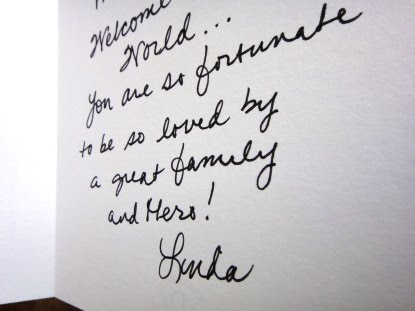 Welcome
World...
You are so fortunate
to be so loved by
a great family
and Hero!
Linda